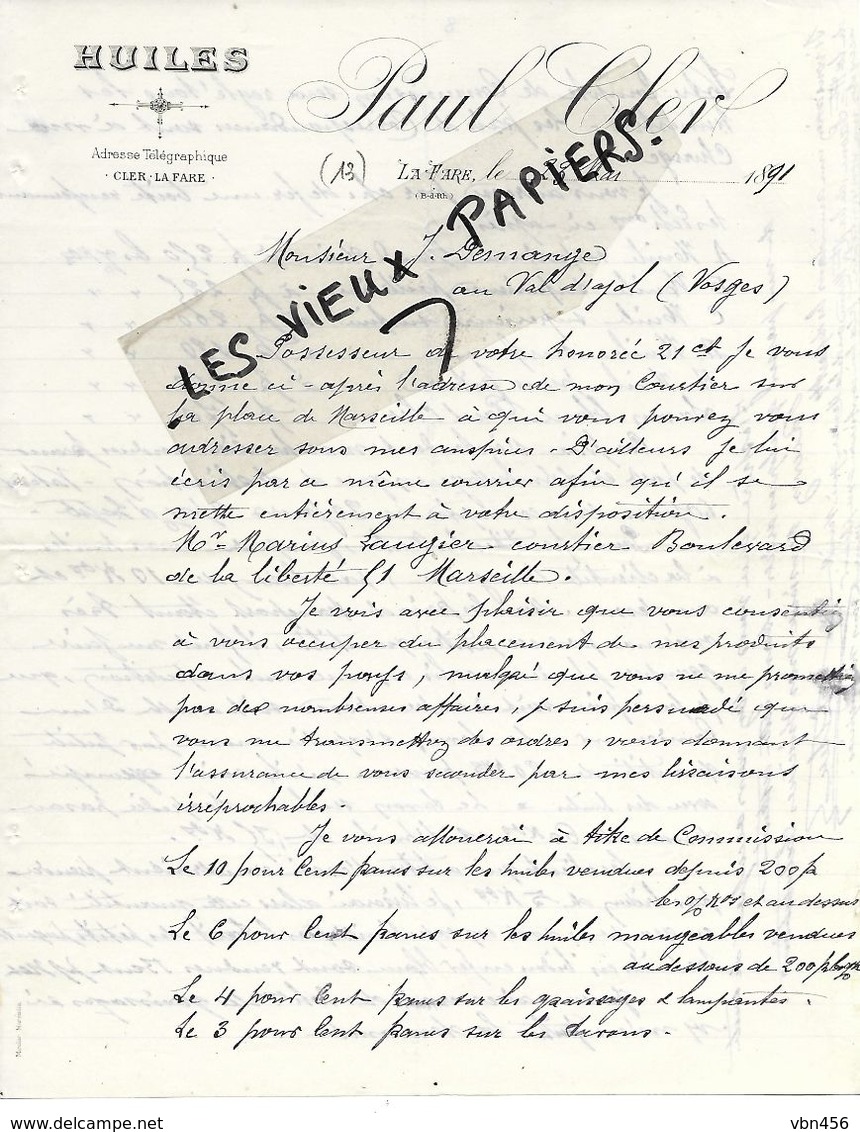 HUILES
Paul Cler
Adresse Télégraphique
CLER · LA FARE
(13)
LA FARE, le Mai 1891
(B-du-Rh)
LES VIEUX PAPIERS.
Monsieur J. Demange
au Val d'ajol (Vosges)
Possesseur de votre honorée 21 ct Je vous
donne ci-après l'adresse de mon Courtier sur
la place de Marseille à qui vous pouvez vous
adresser sous mes auspices. D'ailleurs Je lui
écris par ce même courrier afin qu'il se
mette entièrement à votre disposition.
Mr Marius Laugier courtier Boulevard
de la liberté 51 Marseille.
Je vois avec plaisir que vous consentiez
à vous occuper du placement de mes produits
dans vos pays, malgré que vous ne me promettiez
pas des nombreuses affaires, je suis persuadé que
vous me transmettrez des ordres, vous donnant
l'assurance de vous seconder par mes livraisons
irréprochables.
Je vous allouerai à titre de Commission
Le 10 pour Cent francs sur les huiles vendues depuis 200 f
les % Kos et au dessus
Le 6 pour Cent francs sur les huiles mangeables vendues
au dessous de 200 f les %
Le 4 pour Cent francs sur les graissages & lampantes.
Le 3 pour Cent francs sur les savons.
Delcampe.net
vbn456